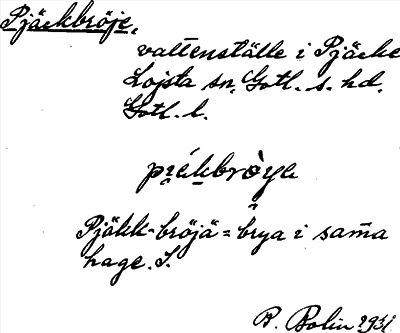 Pjäckbröje.
vattenställe i Pjäcke
Lojsta sn. Gotl. s. hd.
Gotl. l.
pi̯ékbròya
Pjäkk-bröjä = brya i sam̄a
hage. S.
B. Bolin 1931